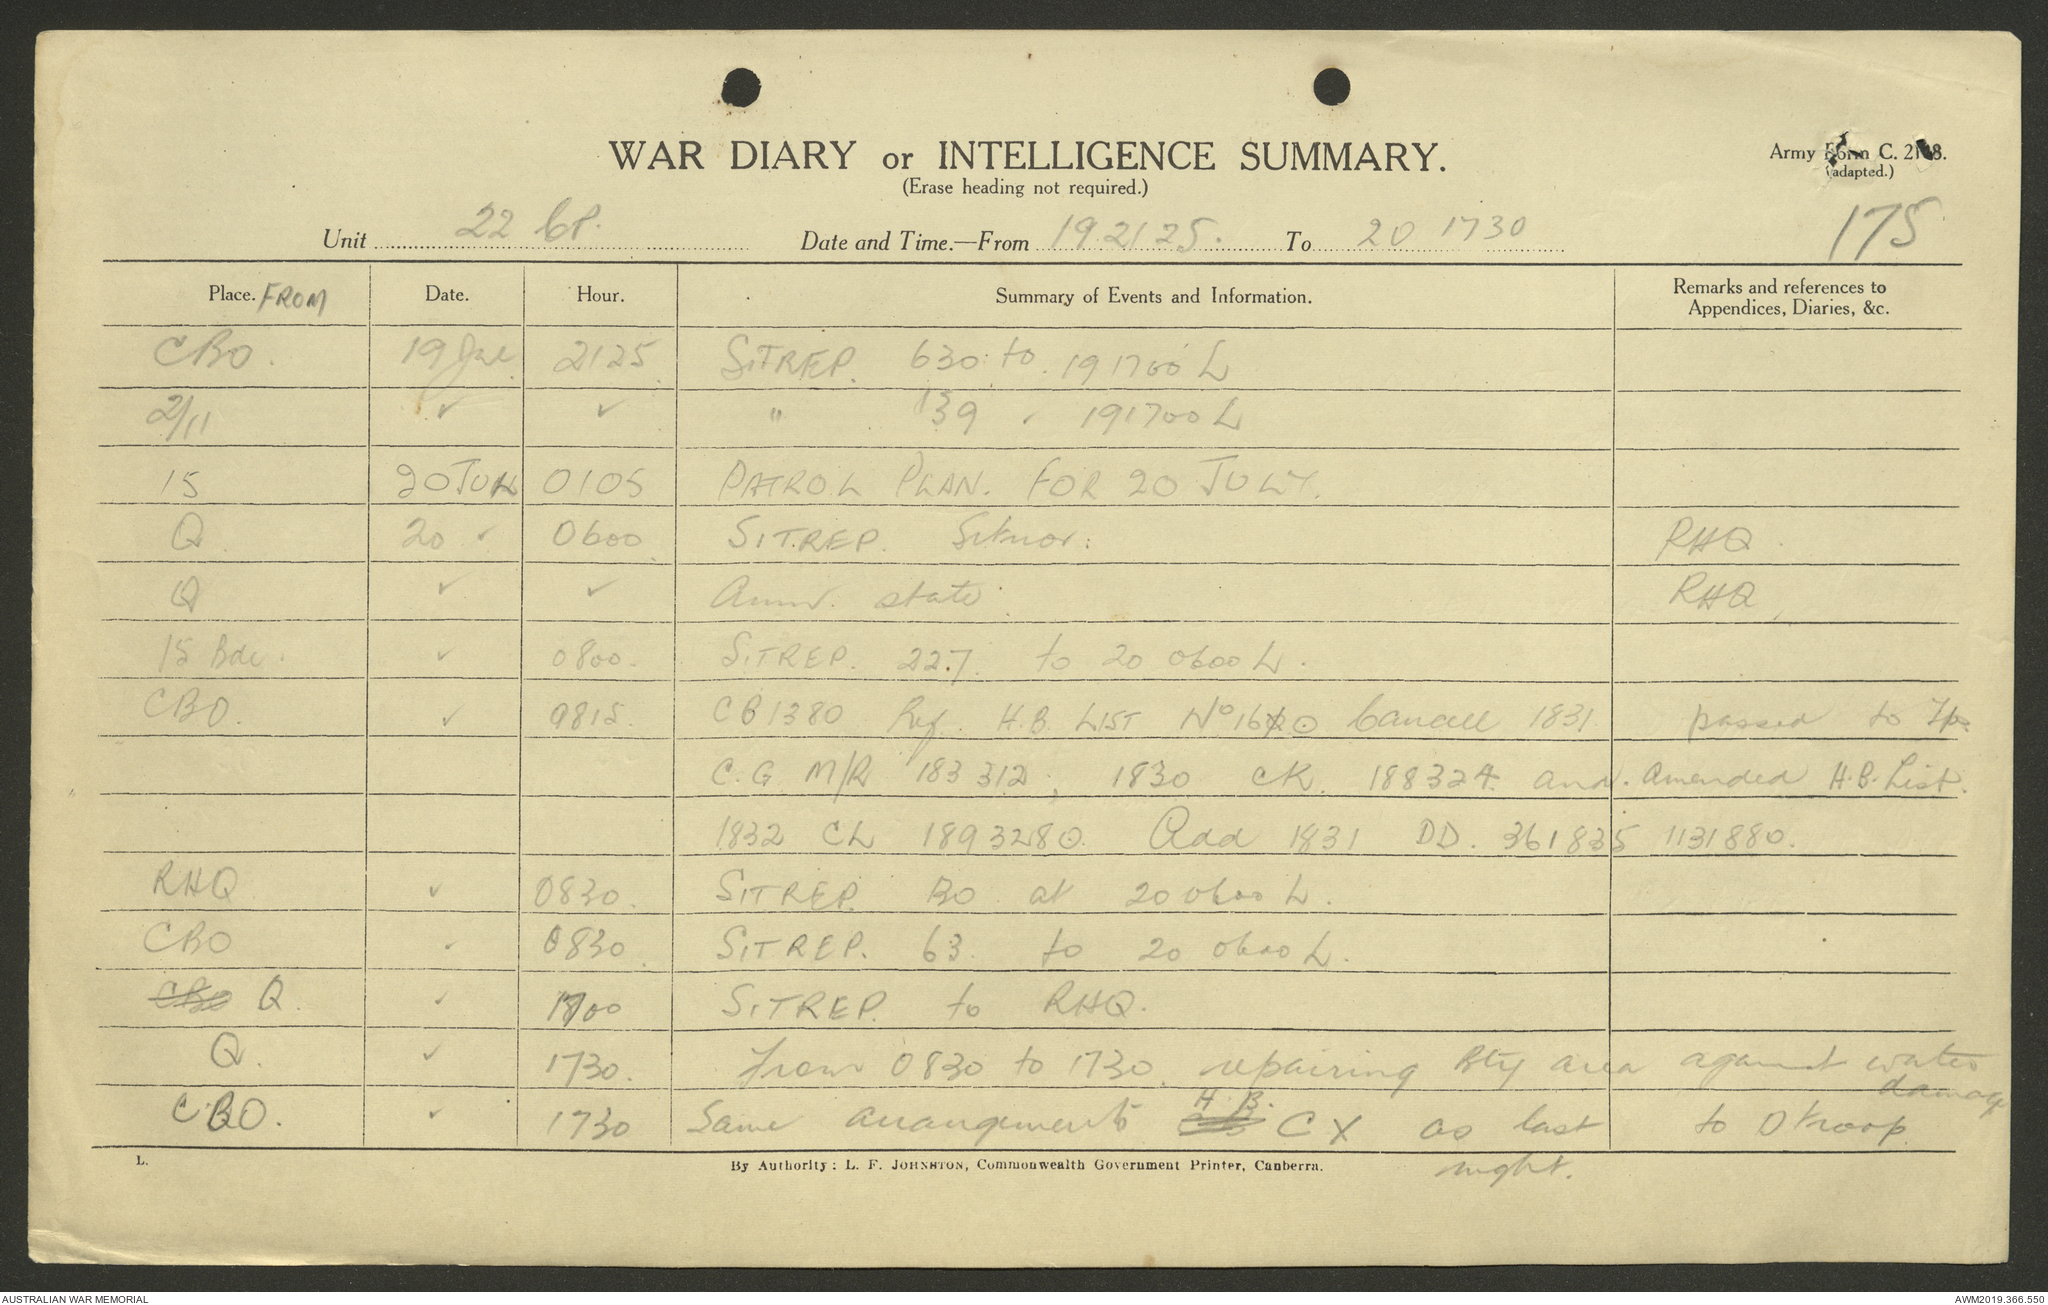 WAR DIARY or INTELLIGENCE SUMMARY.
(Erase heading not required.)
Army Form C. 2118.
(adapted.)
175
Unit 22 Date and Time.—From 19 2125. To 20 1730
Place. FROM Date. Hour. Summary of Events and Information. Remarks and references to Appendices, Diaries, &c.
CBO. 19 Jul 2125 SITREP. 630 to 191700 L
2/11 ✓ ✓ " 139 ✓ 191700 L
15 20 JUL 0105 PATROL PLAN. FOR 20 JULY.
Q 20 ✓ 0600 SITREP. Sitnor. RHQ.
Q ✓ ✓ Amn. state. RHQ
15 Bde. ✓ 0800. SITREP. 227. to 20 0600 L.
CBO. ✓ 0815. CB1380 Ref. H.B. LIST No Cancel 1831 passed to Tps.
C.G M/R 183312, 1830 CK. 188324 and. Amended H.B. List.
1832 CL 1893280. Add 1831 DD. 361835 1131880.
RHQ ✓ 0830. SITREP. at 20 0600 L.
CBO ✓ 0830 SITREP. 63 to 20 0600 L.
CBO Q. ✓ SITREP. to RHQ.
Q. ✓ 1730. From 0830 to 1730. repairing Bty area against water damage
CBO. ✓ 1730 Same arrangements H.B. CX as last to D troop
night.
L. By Authority: L. F. JOHNSTON, Commonwealth Government Printer, Canberra.
AUSTRALIAN WAR MEMORIAL AWM2019.366.550